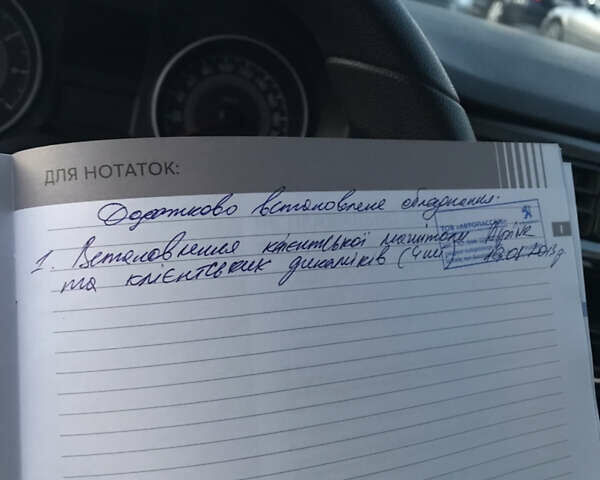 ДЛЯ НОТАТОК:
Додатково встановлене обладнання.
1. Встановлення клієнтської магнітоли Alpine
та клієнтських динаміків (4шт)
ТОВ «АВТОПАССАЖ»